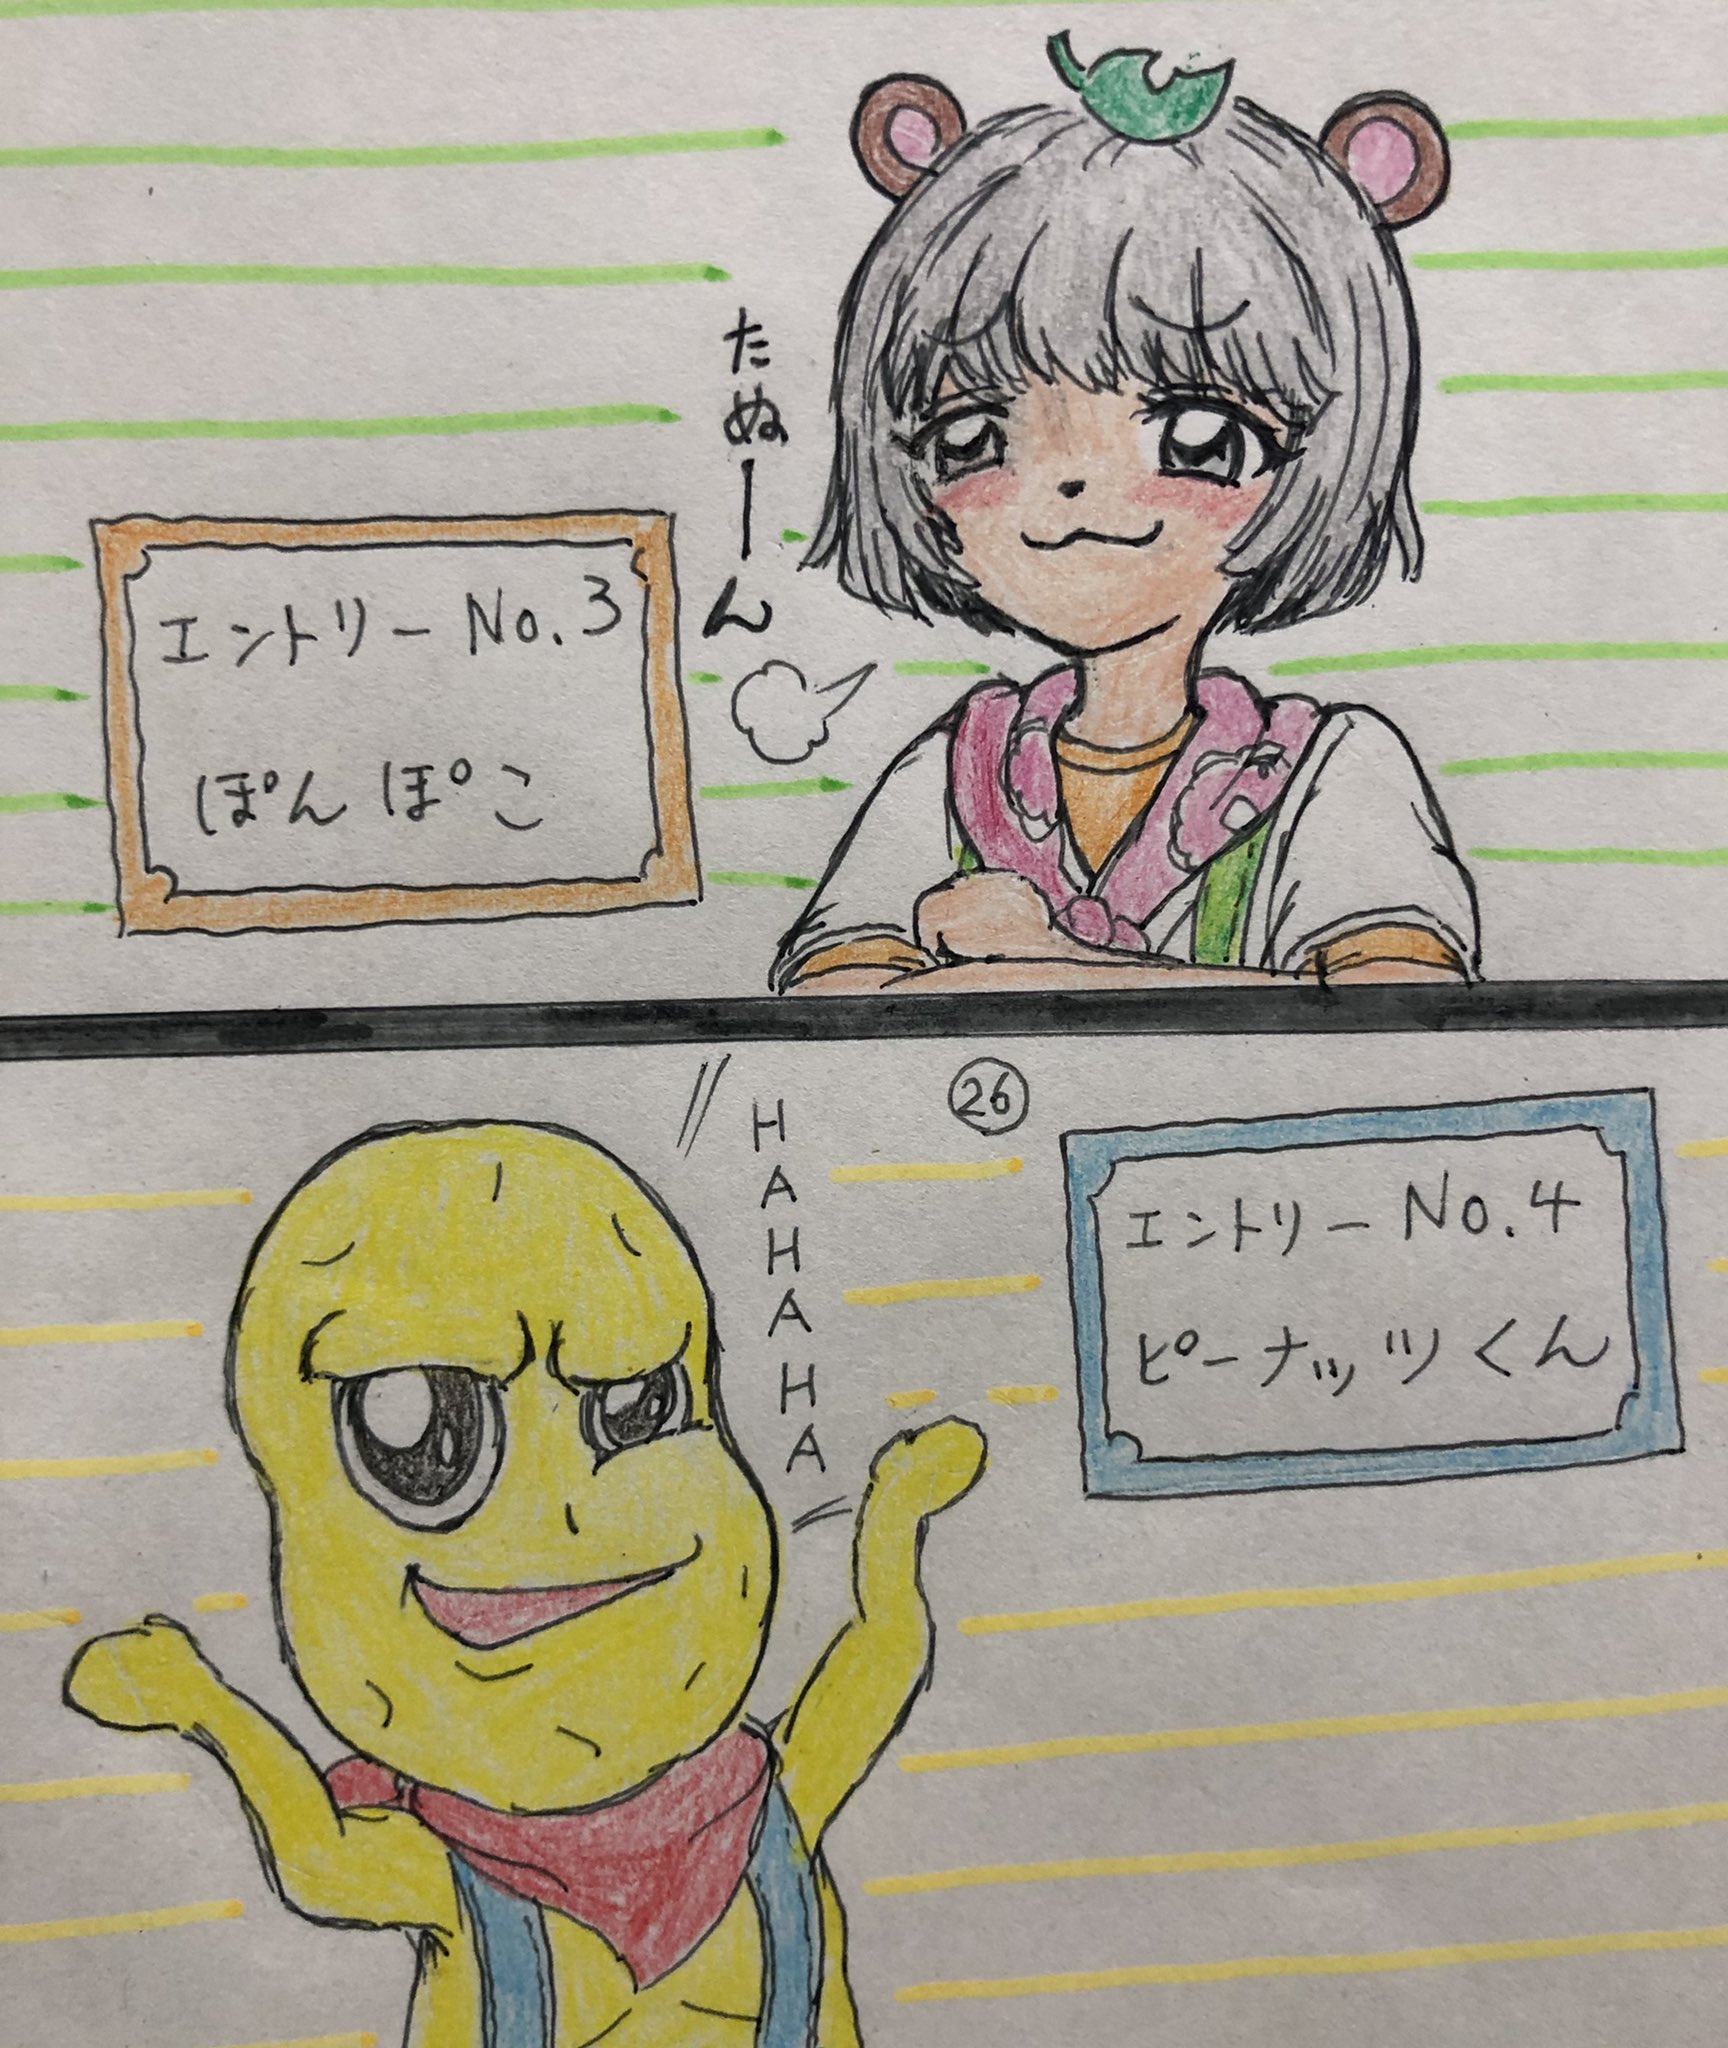 たぬーん
エントリーNo.3
ぽんぽこ
HAHAHAHAHA
26
エントリーNo.4
ピーナッツくん